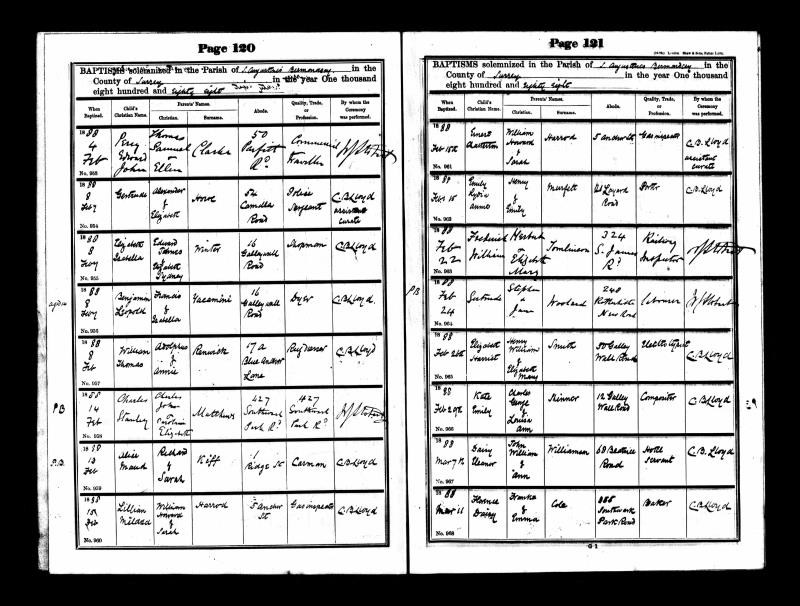 Page 120
BAPTISMS solemnized in the Parish of S. Augustine's Bermondsey in the
County of Surrey in the year One thousand
eight hundred and eighty eight
When Baptized.
Child's Christian Name.
Parents' Names.
Christian.
Surname.
Abode.
Quality, Trade, or Profession.
By whom the Ceremony was performed.
1888
4
Feb
No. 953
Percy Edward John
Thomas Samuel & Ellen
Clarke
50
R^d
Commercial Traveller
1888
8
Feby
No. 954
Gertrude
Alexander & Elizabeth
54
Camilla
Road
Police Sergeant
C.B. Lloyd
assistant
curate
1888
8
Feby
No. 955
Elizabeth Isabella
Edward James & Elizabeth Sydney
Winter
16
Galleywall
Road
Shopman
C.B. Lloyd
aged
1888
8
Feby
No. 956
Benjamin Leopold
Francis & Isabella
16
Galleywall
Road
Dyer
C.B. Lloyd
1888
8
Feb
No. 957
William Thomas
Adolphus & Annie
Renwick
17a
Blue Anchor
Lane
C.B. Lloyd
P.B
1888
14
Feb
No. 958
Charles Stanley
Charles John & Caroline Elizabeth
Matthews
427
Southwark
Park R^d
427
Southwark
Park R^d
P.B.
1888
Feb
No. 959
Alice Maud
Richard & Sarah
Kift
1
Ridge St
Carman
C.B. Lloyd
1888
15
Feb
No. 960
Lillian Mildred
William Howard & Sarah
Harrod
5 Anchor
St
Gas inspector
C.B. Lloyd
Page 121
BAPTISMS solemnized in the Parish of S. Augustine's Bermondsey in the
County of Surrey in the year One thousand
eight hundred and eighty eight
When Baptized.
Child's Christian Name.
Parents' Names.
Christian.
Surname.
Abode.
Quality, Trade, or Profession.
By whom the Ceremony was performed.
1888
Feb 15th
No. 961
Ernest Chatterton
William Howard & Sarah
Harrod
5 Anchor St
Gas inspector
C.B. Lloyd
assistant
curate
1888
Feb 15
No. 962
Emily Lydia Annie
Henry & Emily
Murfett
Layard
Road
Porter
C.B. Lloyd
1888
Feb
22
No. 963
Frederick William
Herbert & Elizabeth Mary
Tomlinson
324
S. James
R^d
Railway Inspector
P.B
1888
Feb
24
No. 964
Gertrude
Stephen & Jane
Woolard
240
Rotherhithe
New Road
Labourer
1888
Feb 26th
No. 965
Elizabeth Harriet
Henry William & Elizabeth Mary
Smith
Galley
Wall Road
C.B. Lloyd
1888
Feb 29th
No. 966
Kate Emily
Charles George & Louisa Ann
Skinner
12 Galley
Wall Road
Compositor
C.B. Lloyd
1888
Mar 7th
No. 967
Daisy Eleanor
John William & Ann
Williamson
68
Road
Hotel Servant
C.B. Lloyd
1888
Mar 11
No. 968
Florence Daisy
& Emma
Cole
Southwark
Park Road
Baker
C.B. Lloyd
G 1